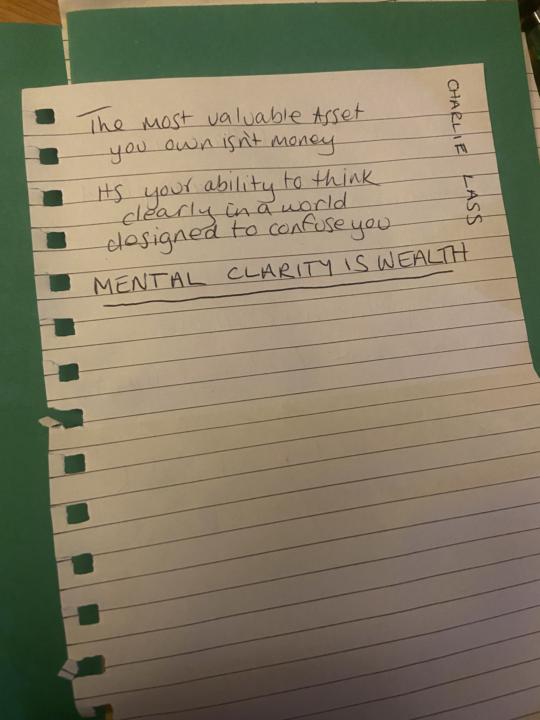 The most valuable Asset
you own isn't money
Its your ability to think
clearly in a world
designed to confuse you
MENTAL CLARITY IS WEALTH
CHARLIE LASS